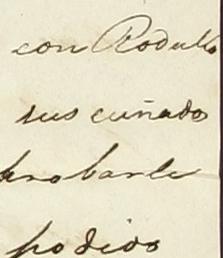 con Rodulfo
sus cuñado
probarle
podido